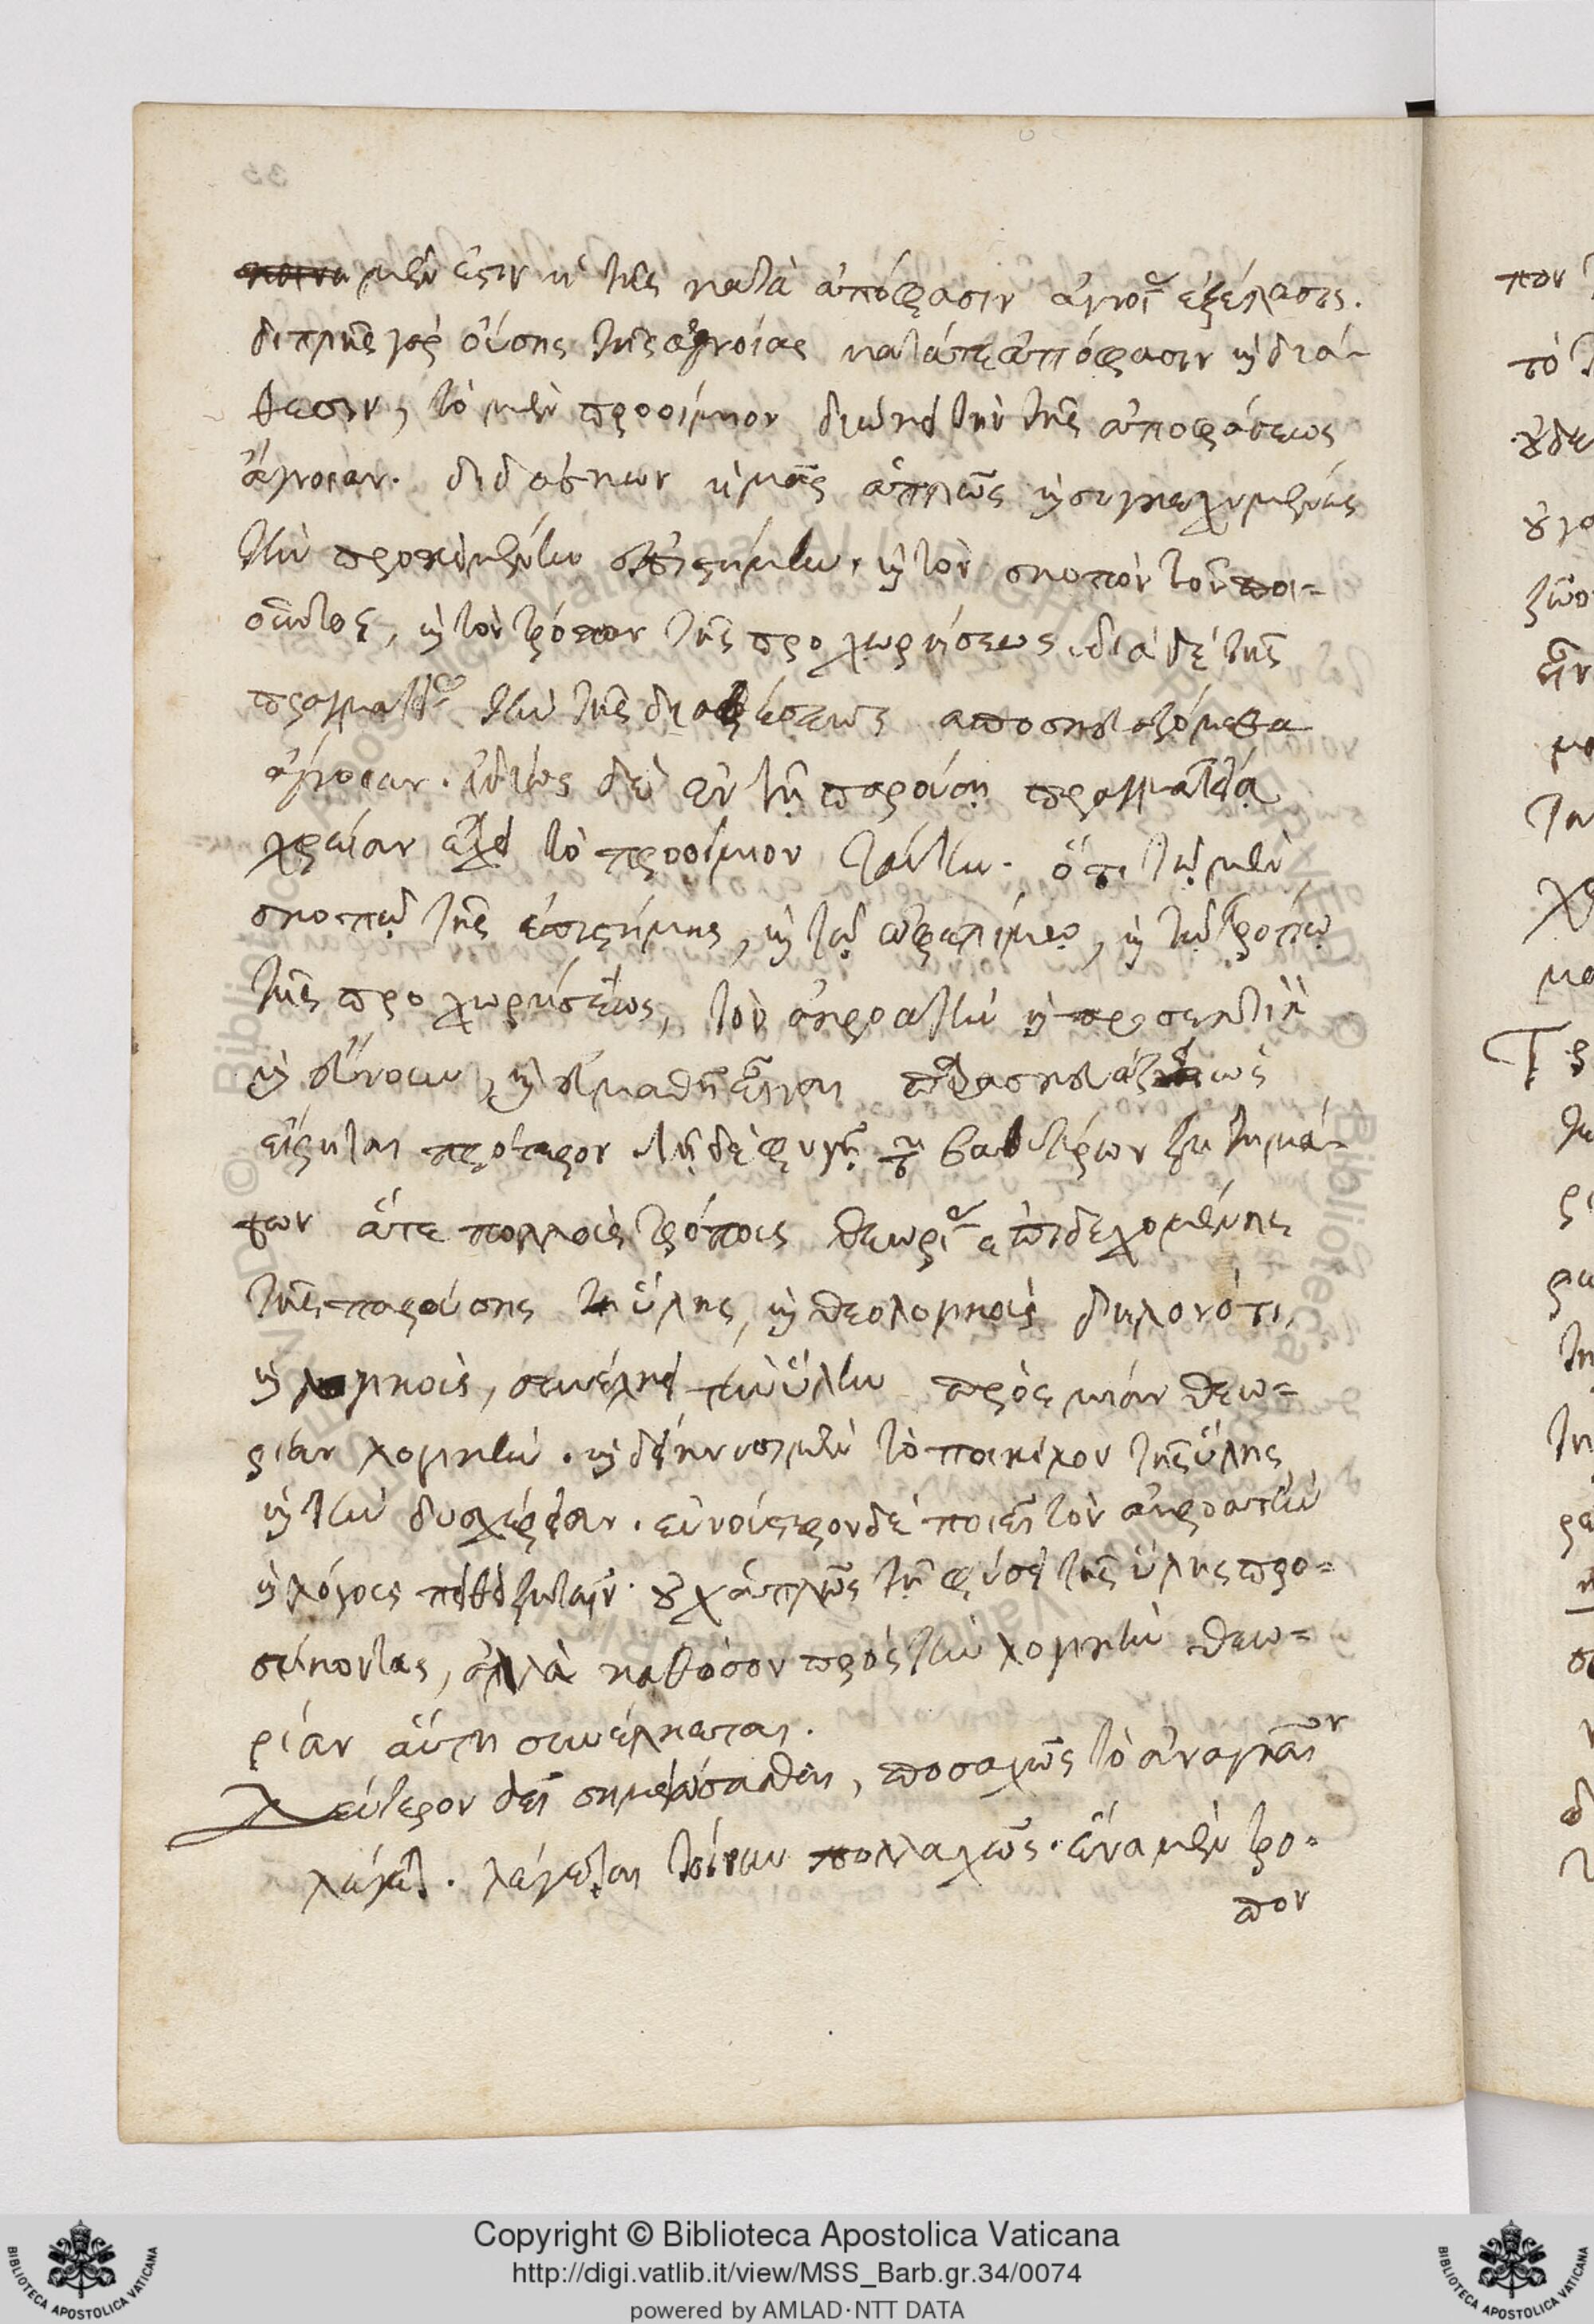 μέν ἐστιν ἡ τῆς κατὰ ἀπόφασιν ἀγνοίας ἐξέλασις.
διπλῆς γὰρ οὔσης τῆς ἀγνοίας κατά τε ἀπόφασιν καὶ διά-
θεσιν, τὸ μὲν προοίμιον διώκει τὴν τῆς ἀποφάσεως
ἄγνοιαν. διδάσκων ἡμᾶς ἁπλῶς καὶ συγκεχυμένως
τὴν προκειμένην ἐπιστήμην, καὶ τὸν σκοπὸν τοῦ ποι-
οῦντος, καὶ τὸν τρόπον τῆς προχωρήσεως. διὰ δὲ τῆς
πραγματείας τὴν τῆς διαθέσεως ἀποσκευαζόμεθα
ἄγνοιαν. ἰδίως δὲ ἐν τῇ παρούσῃ πραγματείᾳ
χρείαν ἔχει τὸ προοίμιον ταύτην. ὅτι τῷ μὲν
σκοπῷ τῆς ἐπιστήμης, καὶ τῷ ὠφελίμῳ, καὶ τῷ τρόπῳ
τῆς προχωρήσεως, τὸν ἀκροατὴν καὶ προσεκτικὸν
καὶ εὔνουν, καὶ εὐμαθῆ εἶναι παρασκευάζει ὡς
εἴρηται πρότερον. τῇ δὲ φυγῇ τῶν βαθυτέρων ζητημά-
των ἅτε πολλοῖς τρόποις θεωρίας ἐπιδεχομένης
τῆς παρούσης ὕλης, καὶ θεολογικοῖς δηλονότι,
καὶ λογικοῖς, συνέλκει τὴν ὕλην πρὸς μίαν θεω-
ρίαν λογικήν. καὶ δείκνυσι μὲν τὸ ποικίλον τῆς ὕλης
καὶ τὴν δυσχέρειαν. εὐνούστερον δὲ ποιεῖ τὸν ἀκροατὴν
καὶ λόγοις πείθει ζητεῖν. οὐχ ἁπλῶς τῇ φύσει τῆς ὕλης προ-
σήκοντας, ἀλλὰ καθόσον πρὸς τὴν λογικὴν θεω-
ρίαν αὕτη συνέλκεται.
Δεύτερον δεῖ σημειώσασθαι, ποσαχῶς τὸ ἀναγκαῖον
λέγεται. λέγεται τοίνυν πολλαχῶς. ἕνα μὲν τρό-
πον